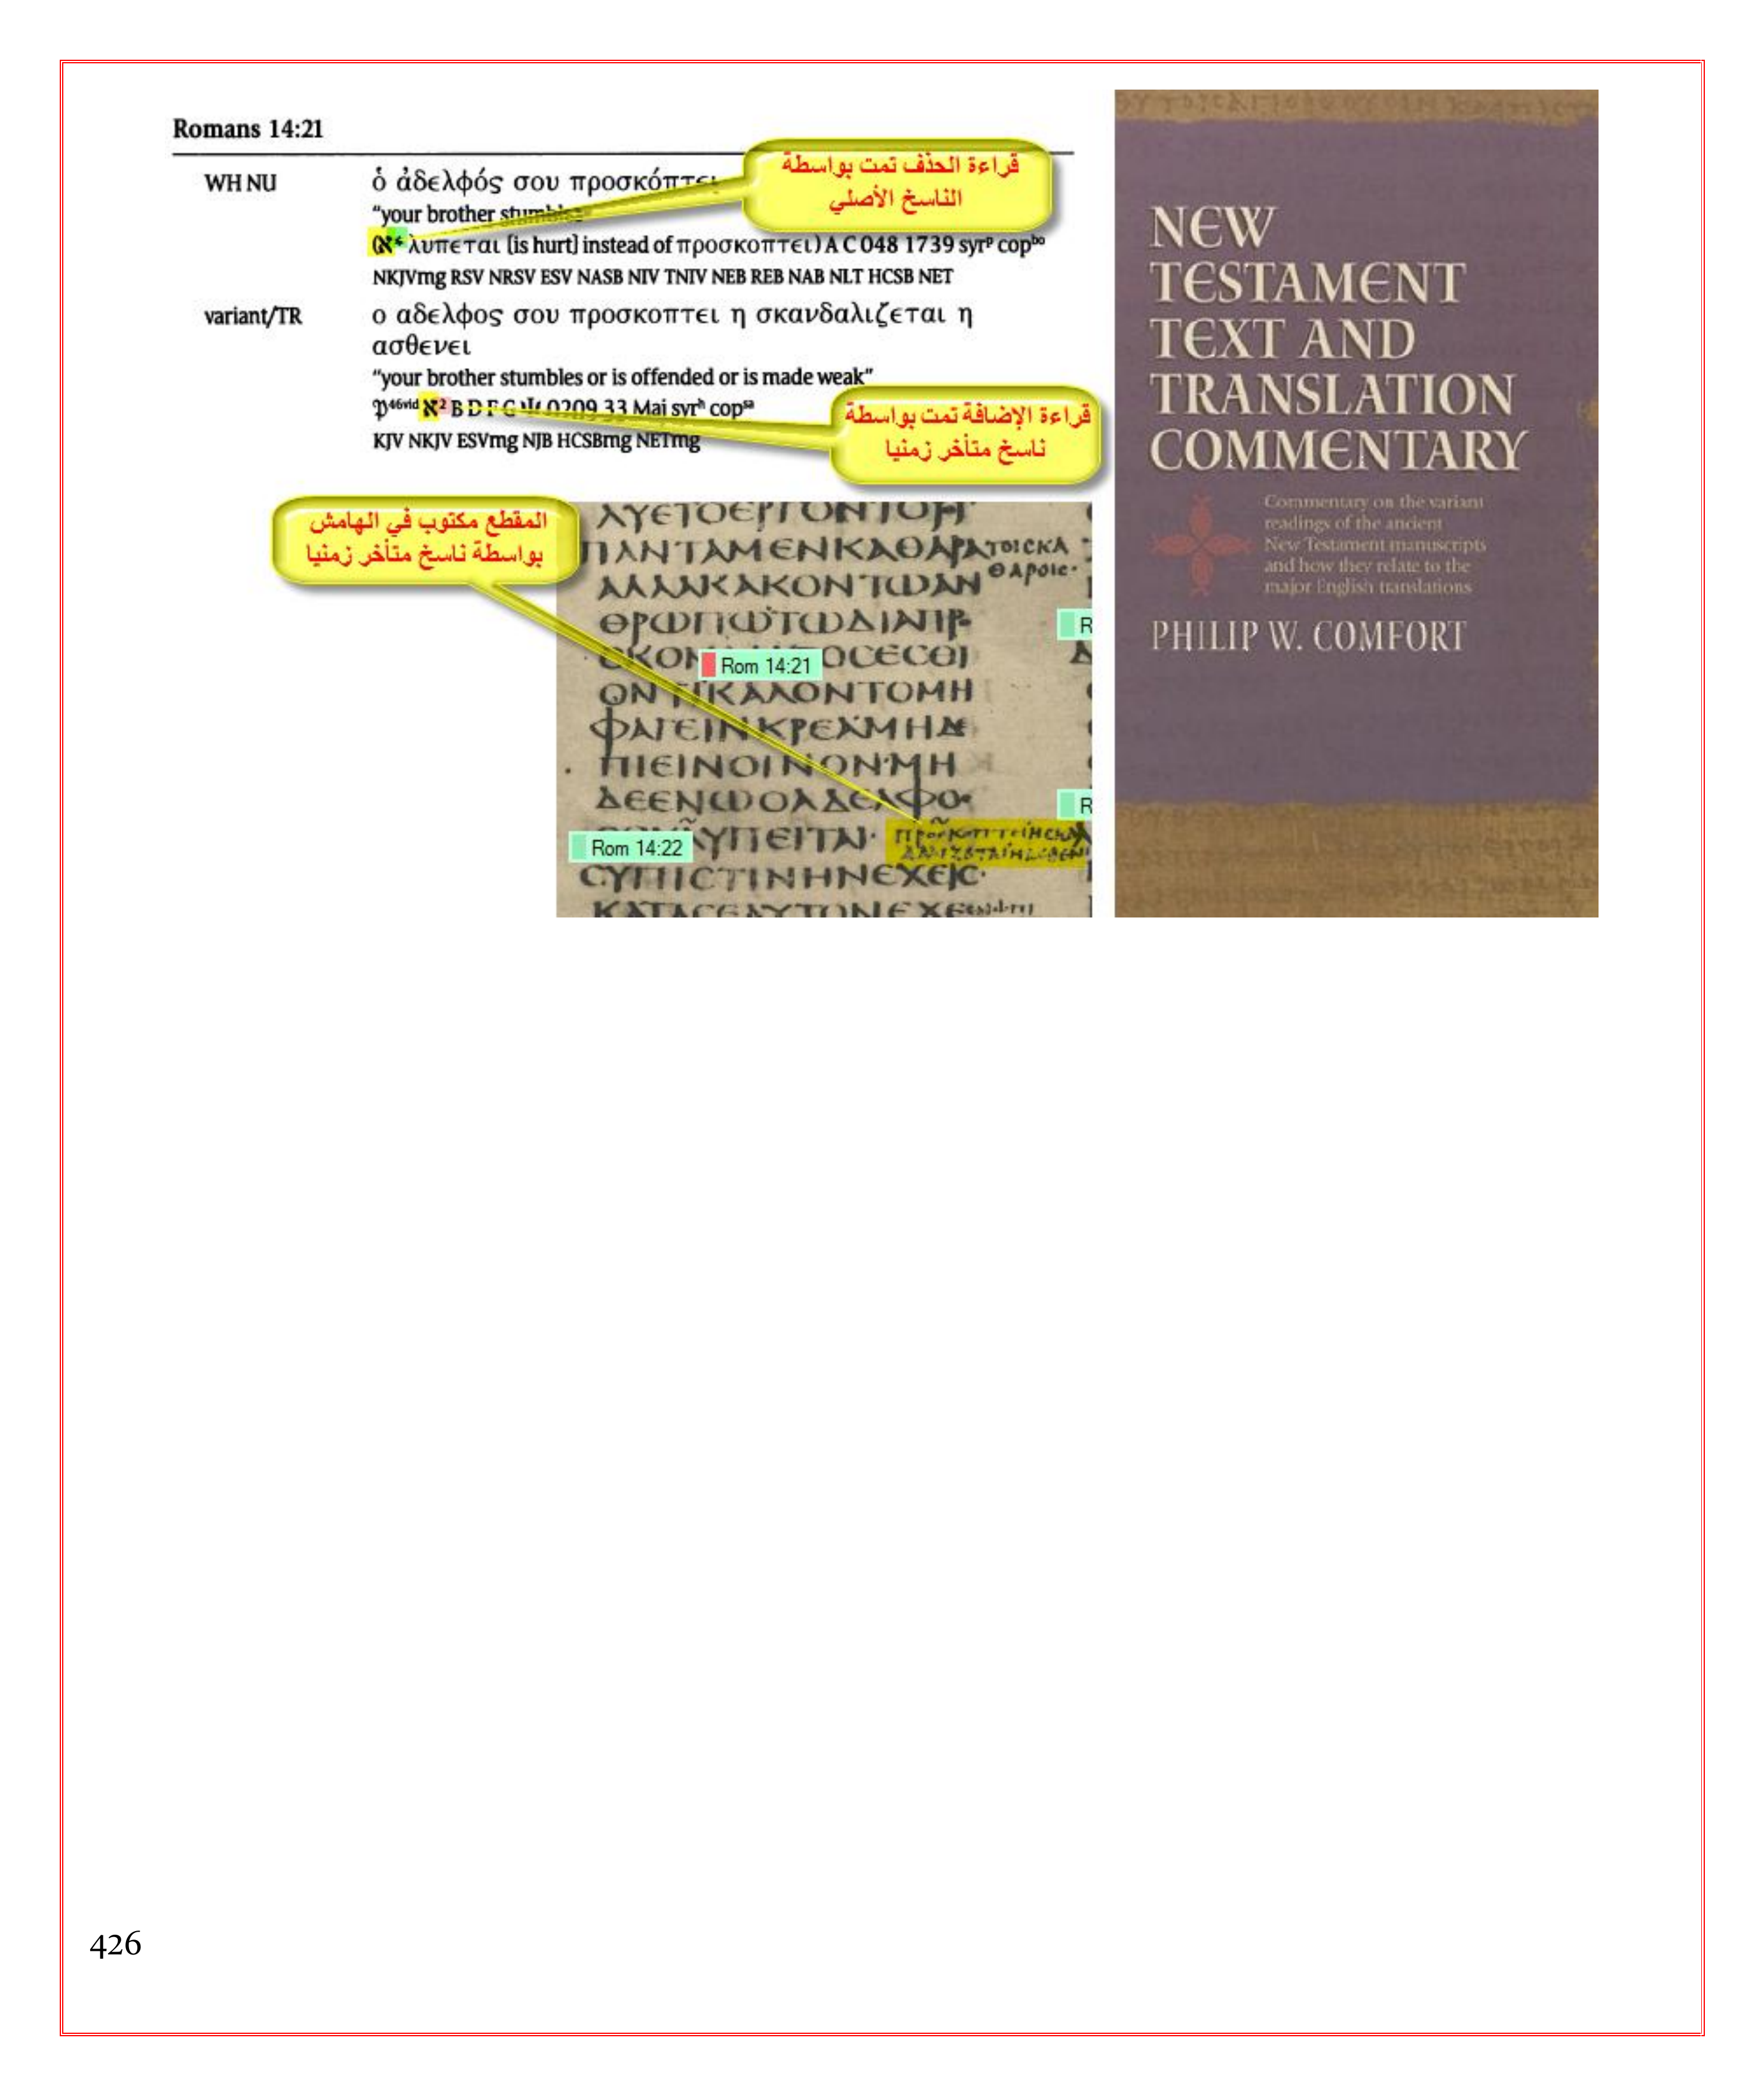 Romans 14:21
WH NU
ὁ ἀδελφός σου προσκόπτει
“your brother stumbles”
(א* λυπεται [is hurt] instead of προσκοπτει) A C 048 1739 syrᵖ copᵇᵒ
NKJVmg RSV NRSV ESV NASB NIV TNIV NEB REB NAB NLT HCSB NET
variant/TR
ο αδελφος σου προσκοπτει η σκανδαλιζεται η
ασθενει
“your brother stumbles or is offended or is made weak”
𝔓⁴⁶ᵛⁱᵈ א² B D F G Ψ 0209 33 Maj syrʰ copˢᵃ
KJV NKJV ESVmg NJB HCSBmg NETmg
قراءة الحذف تمت بواسطة
الناسخ الأصلي
قراءة الإضافة تمت بواسطة
ناسخ متأخر زمنيا
المقطع مكتوب في الهامش
بواسطة ناسخ متأخر زمنيا
ΠΑΝΤΑΜΕΝΚΑΘΑΡΑ ΤΟΙΣΚΑ
ΑΛΛΑΚΑΚΟΝΤΩΑΝ ΘΑΡΟΙΣ·
ΘΡΩΠΩΤΩΔΙΑΠΡ
Rom 14:21
ΦΑΓΕΙΝΚΡΕΑΜΗΔΕ
ΠΙΕΙΝΟΙΝΟΝΜΗ
ΔΕΕΝΩΟΑΔΕΛΦΟ
Rom 14:22
CΥΠΙCΤΙΝΗΝΕΧΕΙC·
NEW
TESTAMENT
TEXT AND
TRANSLATION
COMMENTARY
Commentary on the variant
readings of the ancient
New Testament manuscripts
and how they relate to the
major English translations
PHILIP W. COMFORT
426